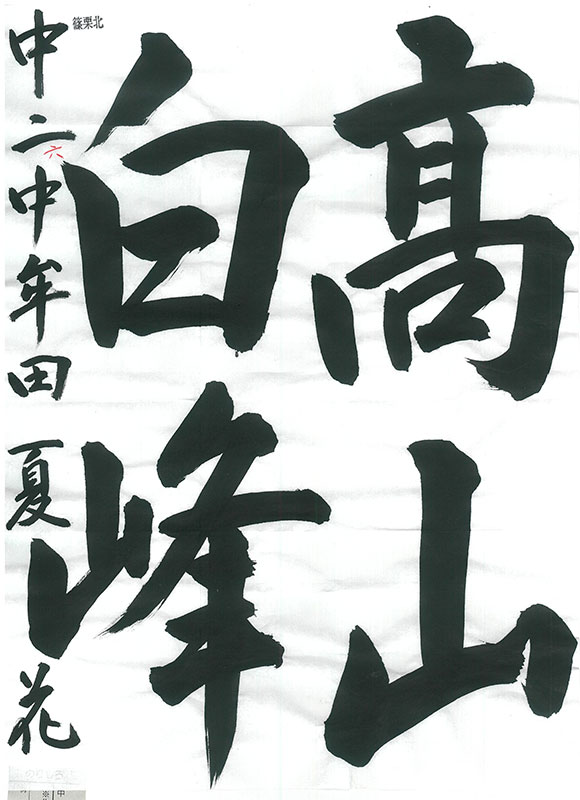 高山
白峰
篠栗北
中二中牟田夏花
六
中
※